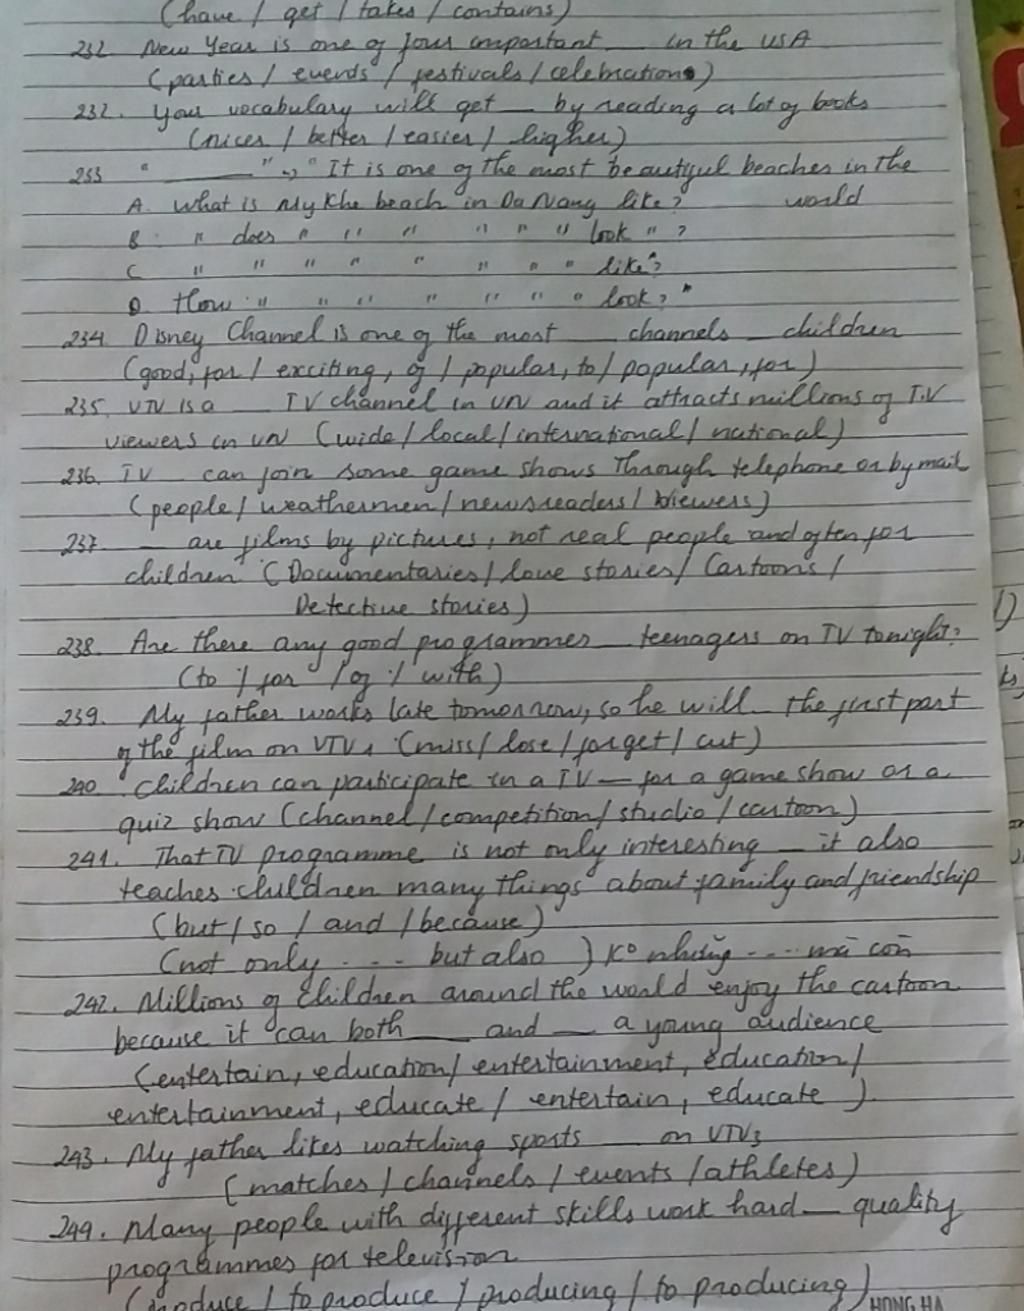 (have / get / takes / contains)
232. New Year is one of four important __ in the USA
(parties / events / festivals / celebrations)
232. Your vocabulary will get __ by reading a lot of books
(nicer / better / easier / higher)
233 " ______ " → " It is one of the most beautiful beaches in the
A. What is My Khe beach in Da Nang like? world
B. " does " " " " " " look " ?
C " " " " " " " " like?
D. How " " " " " " " look? "
234. Disney Channel is one of the most __ channels __ children
(good, for / exciting, of / popular, to / popular, for)
235. VTV is a __ TV channel in VN and it attracts millions of T.V
viewers in VN (wide / local / international / national)
236. TV __ can join some game shows through telephone or by mail
(people / weathermen / newsreaders / viewers)
237. __ are films by pictures, not real people and often for
children (Documentaries / love stories / Cartoons /
Detective stories)
238. Are there any good programmes __ teenagers on TV tonight?
(to / for / of / with)
239. My father works late tomorrow, so he will __ the first part
of the film on VTV1 (miss / lose / forget / cut)
240 Children can participate in a TV __ for a game show or a
quiz show (channel / competition / studio / cartoon)
241. That TV programme is not only interesting __ it also
teaches children many things about family and friendship
(but / so / and / because)
(not only .... but also ) Ko những .... mà còn
242. Millions of children around the world enjoy the cartoon
because it can both __ and __ a young audience
(entertain, education / entertainment, education /
entertainment, educate / entertain, educate )
243. My father likes watching sports __ on VTV3
(matches / channels / events / athletes)
244. Many people with different skills work hard __ quality
programmes for television
(produce / to produce / producing / to producing)
HONG HA